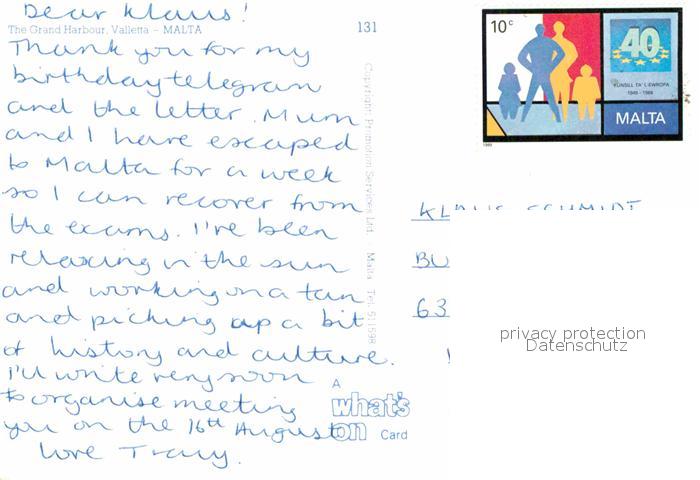 Dear Klaus!
The Grand Harbour, Valletta – MALTA
131
Thank you for my
birthday telegram
and the letter. Mum
and I have escaped
to Malta for a week
so I can recover from
the exams. I've been
relaxing in the sun
and working on a tan
and picking up a bit
of history and culture.
I'll write very soon
to organise meeting
you on the 16th August
love Tracy.
Copyright: Promotion Services Ltd. - Malta Tel: 511598
A
what's
on Card
10c
40
KUNSILL TA' L-EWROPA
1949 - 1989
MALTA
1989
KLAUS SCHMIDT
BU
63
privacy protection
Datenschutz